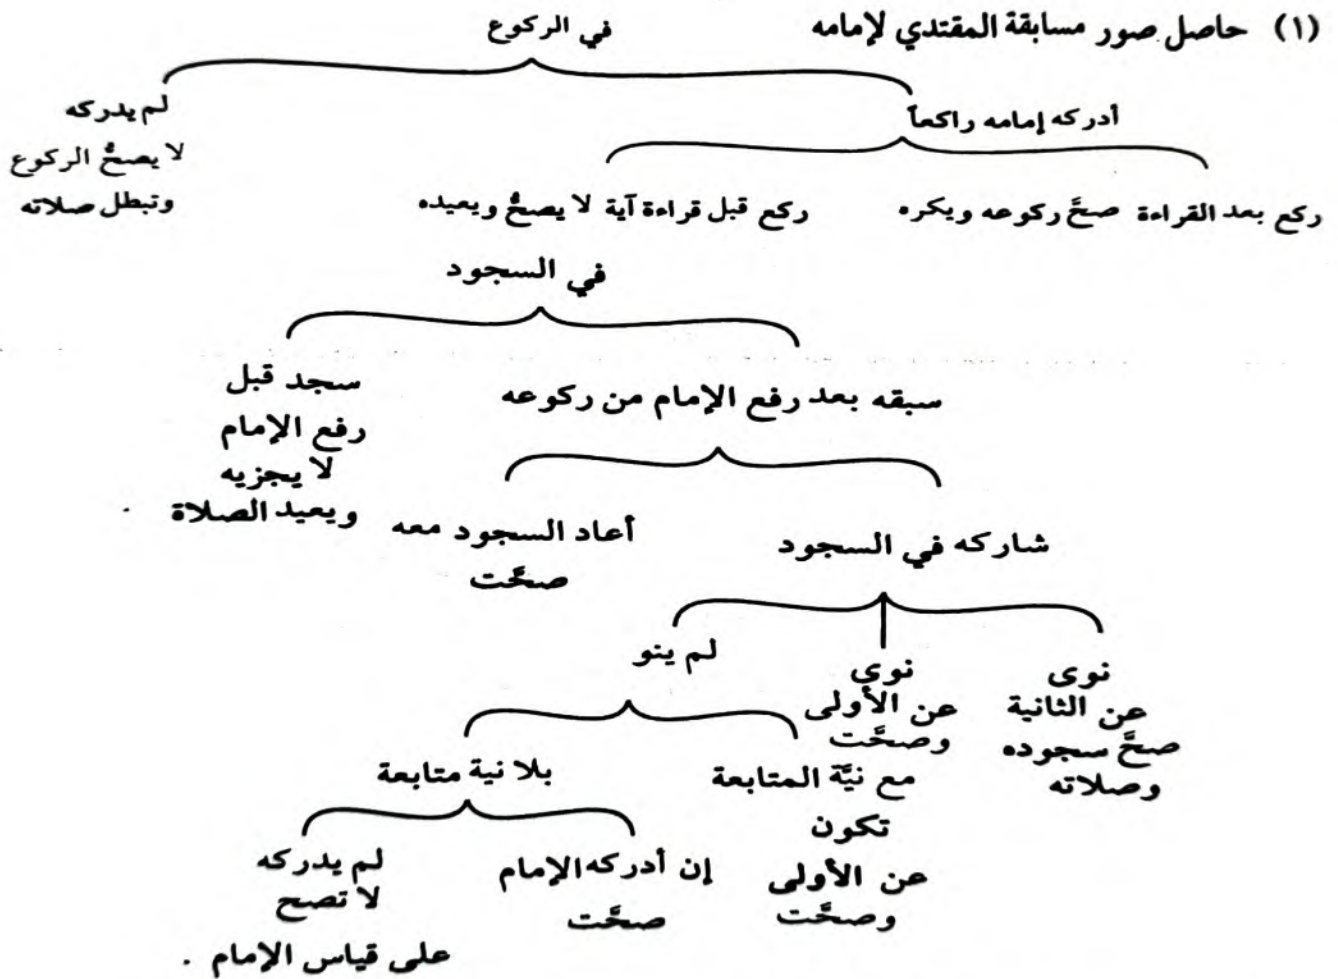 (١) حاصل صور مسابقة المقتدي لإمامه
في الركوع
أدركه إمامه راكعاً
ركع بعد القراءة صحَّ ركوعه ويكره
ركع قبل قراءة آية لا يصحُّ ويعيده
لم يدركه
لا يصحُّ الركوع
وتبطل صلاته
في السجود
سبقه بعد رفع الإمام من ركوعه
سجد قبل
رفع الإمام
لا يجزيه
ويعيد الصلاة .
شاركه في السجود
أعاد السجود معه
صحَّت
نوى
عن الثانية
صحَّ سجوده
وصلاته
نوي
عن الأولى
وصحَّت
لم ينو
مع نيَّة المتابعة
تكون
عن الأولى
وصحَّت
بلا نية متابعة
إن أدركه الإمام
صحَّت
لم يدركه
لا تصح
على قياس الإمام .